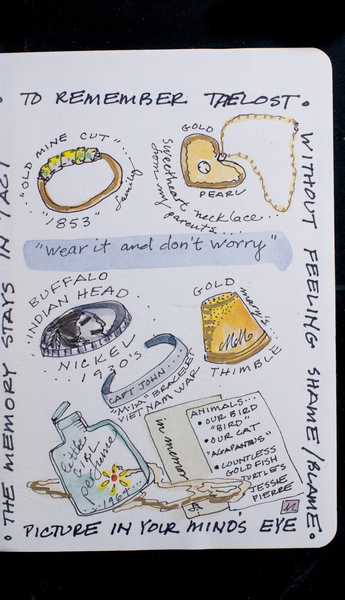 • TO REMEMBER THE LOST •
WITHOUT FEELING SHAME/BLAME •
PICTURE IN YOUR MIND'S EYE
• THE MEMORY STAYS IN TACT
"OLD MINE CUT"...
"1853"
family
GOLD
PEARL
Sweetheart necklace...
from my parents...
"wear it and don't worry"
BUFFALO
INDIAN HEAD
NICKEL
1930's
GOLD
mary's...
MCM
THIMBLE
CAPT JOHN...
"M.I.A." BRACELET
VIET NAM WAR
Little
Girl
perfume
1964
in memory
ANIMALS...
• OUR BIRD
"BIRD"
• OUR CAT
"AGAPANTUS"
• COUNTLESS
GOLD FISH
TURTLE'S
JESSIE
PIERRE